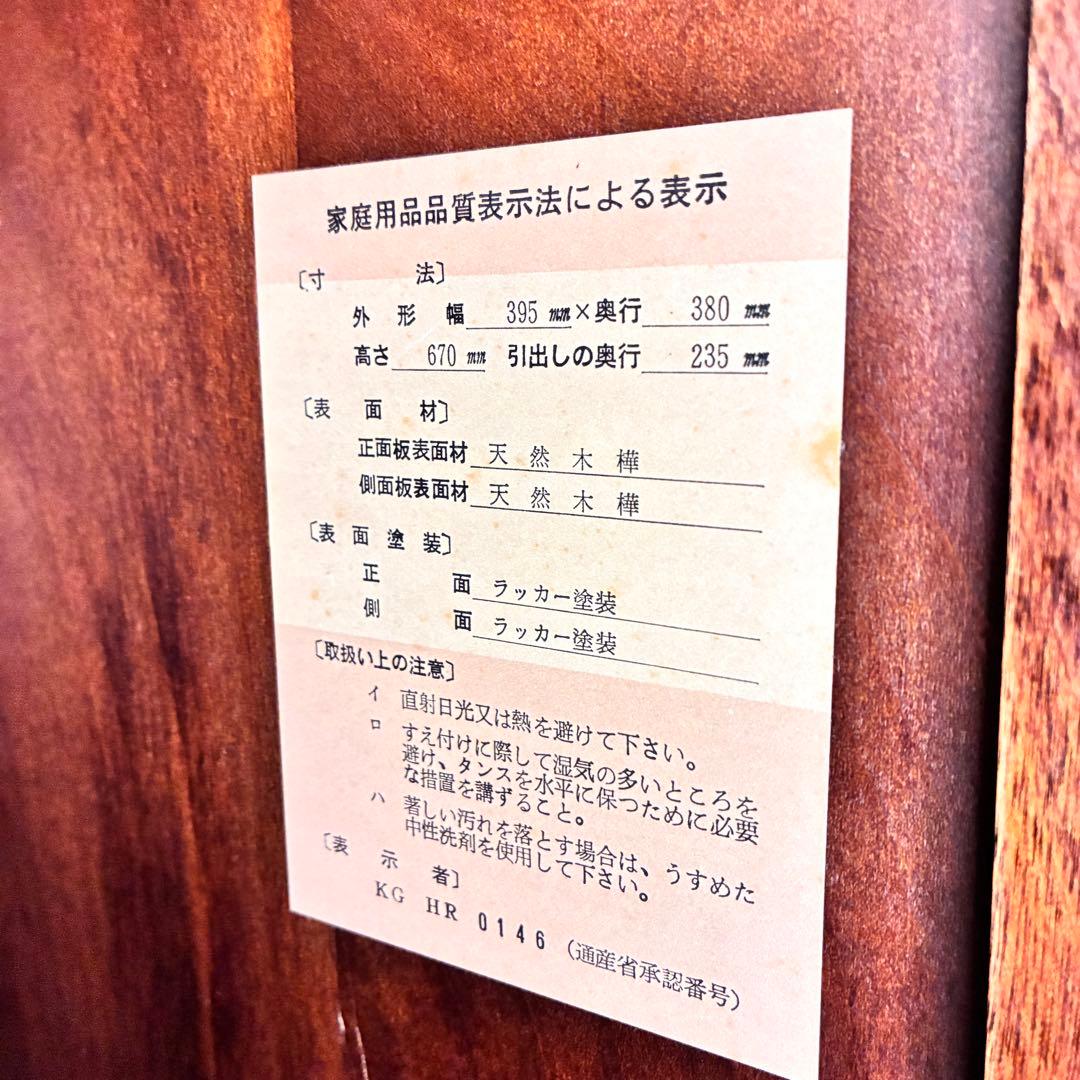 家庭用品品質表示法による表示
〔寸 法〕
外形幅 395 mm×奥行 380 mm
高さ 670 mm 引出しの奥行 235 mm
〔表面材〕
正面板表面材 天然木樺
側面板表面材 天然木樺
〔表面塗装〕
正 面 ラッカー塗装
側 面 ラッカー塗装
〔取扱い上の注意〕
イ 直射日光又は熱を避けて下さい。
ロ すえ付けに際して湿気の多いところを
避け、タンスを水平に保つために必要
な措置を講ずること。
ハ 著しい汚れを落とす場合は、うすめた
中性洗剤を使用して下さい。
〔表示者〕
KG HR 0146 (通産省承認番号)